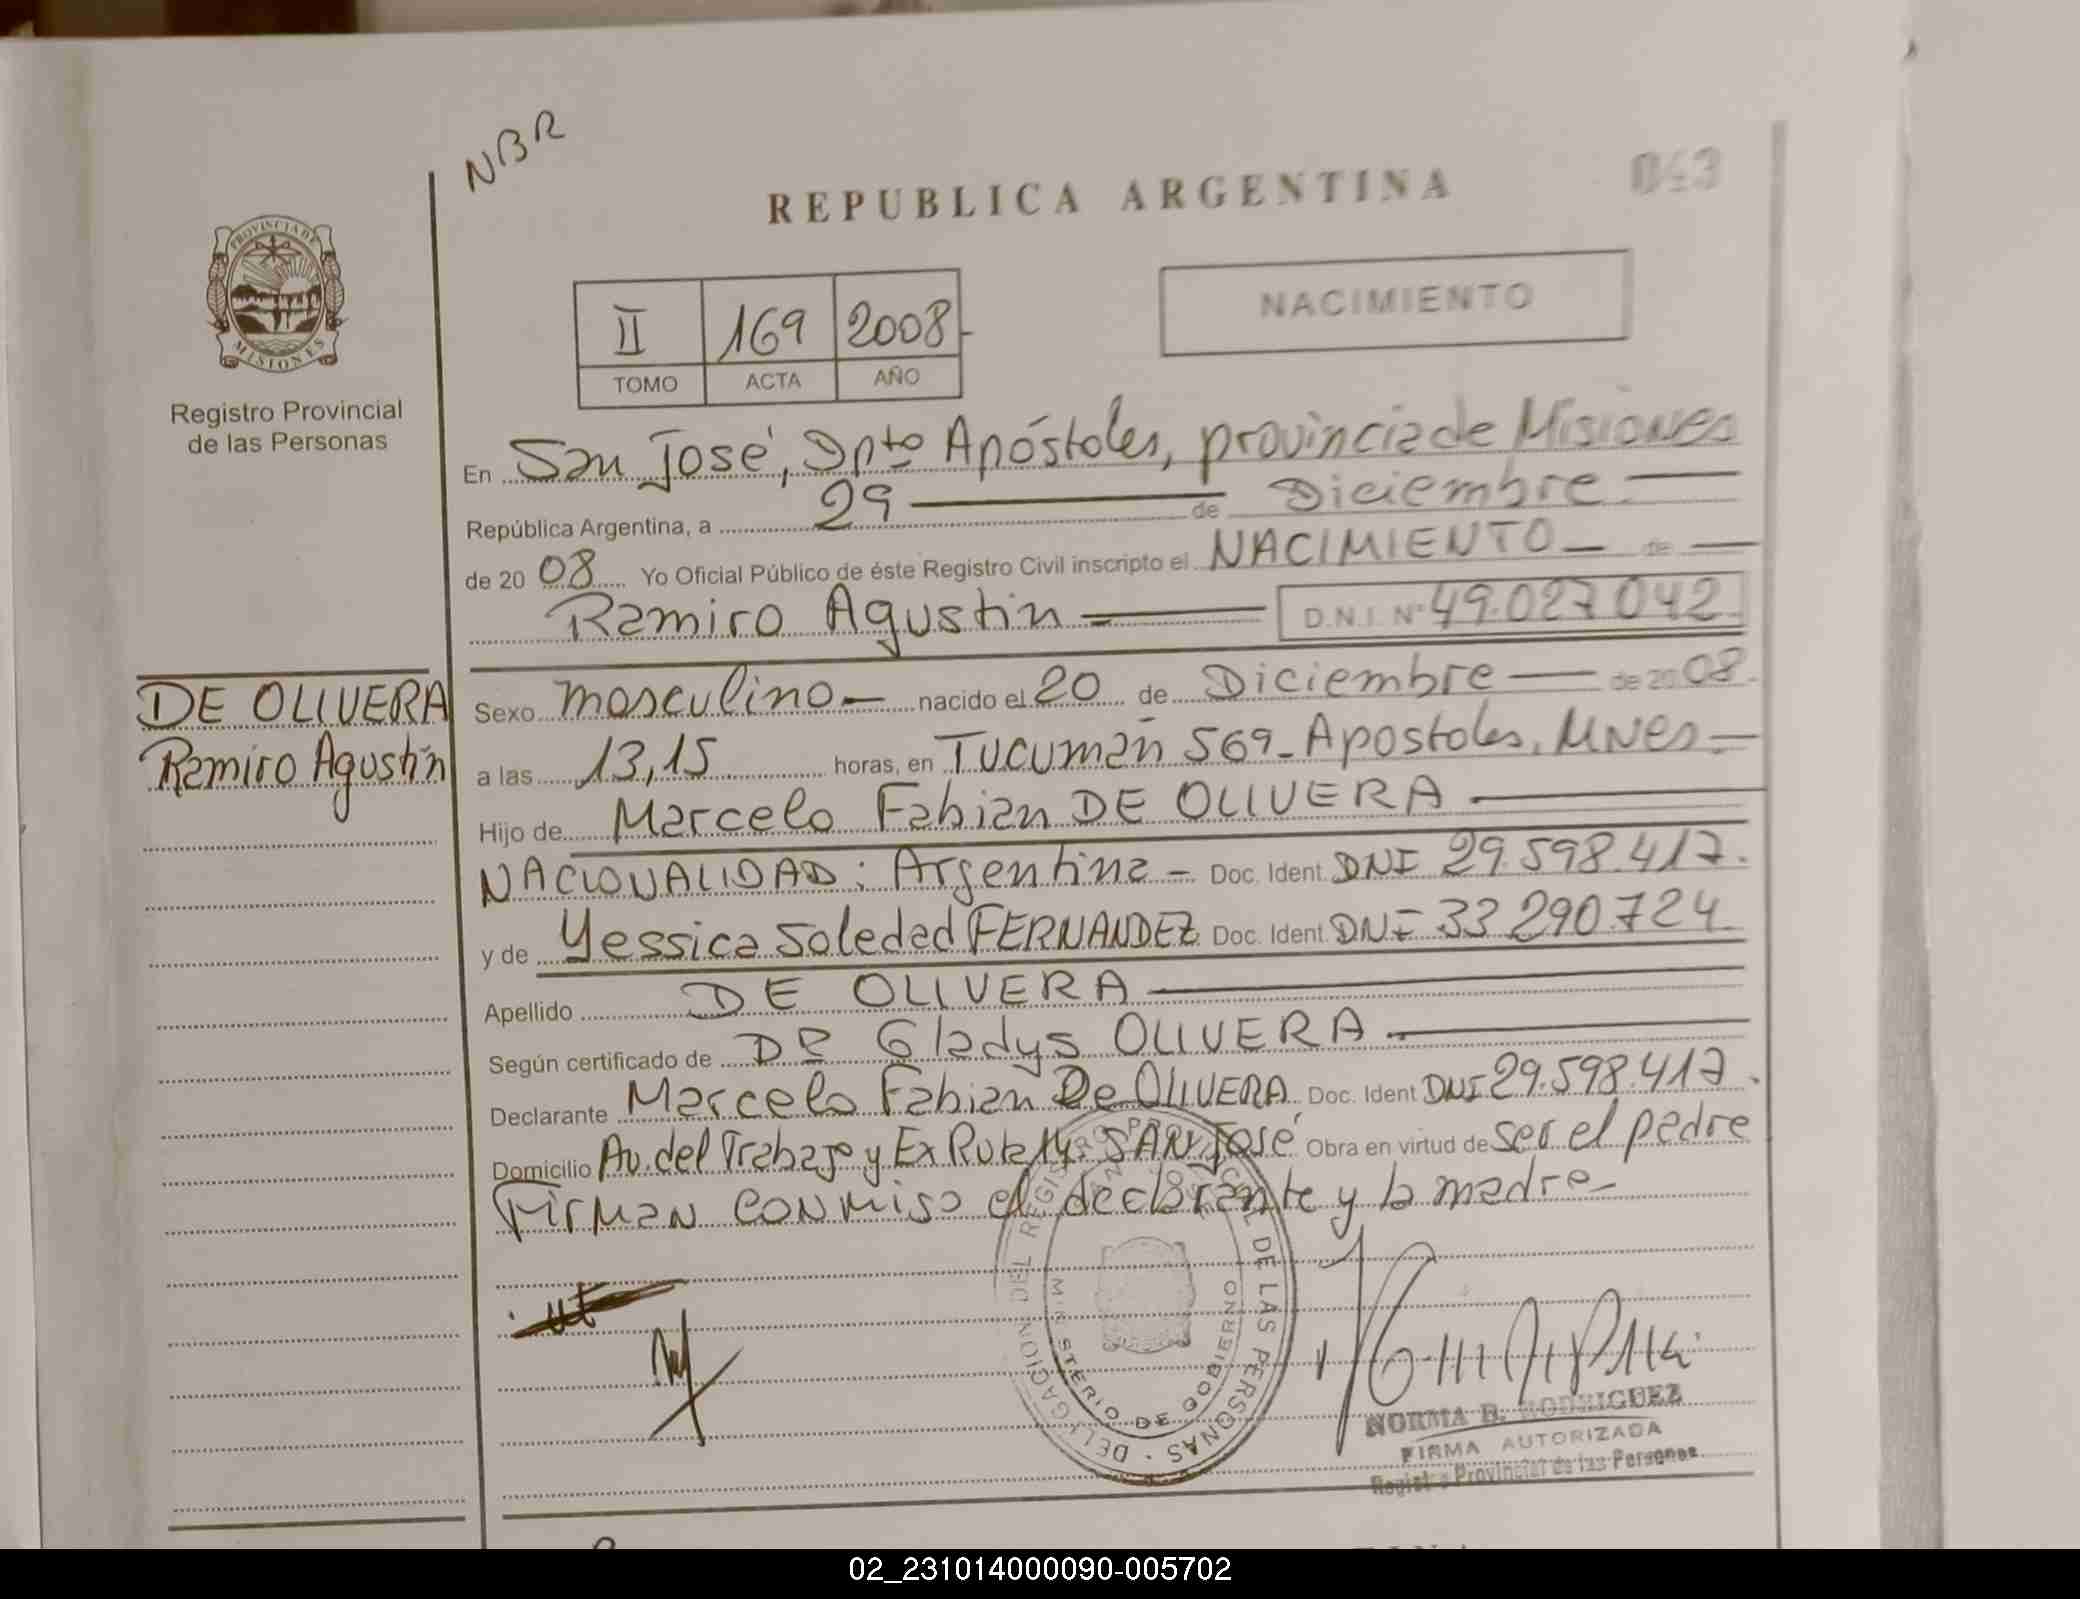 NBR
REPUBLICA ARGENTINA
043
PROVINCIA DE
MISIONES
Registro Provincial
de las Personas
II 169 2008-
TOMO ACTA AÑO
NACIMIENTO
En San José, Dpto Apóstoles, provincia de Misiones
República Argentina, a 29 de Diciembre
de 20 08 Yo Oficial Público de éste Registro Civil inscripto el NACIMIENTO de
Ramiro Agustín D.N.I. Nº 49.027.042
DE OLIVERA
Ramiro Agustín
Sexo masculino nacido el 20 de Diciembre de 20 08
a las 13,15 horas, en Tucumán 569 - Apostoles, Mnes
Hijo de Marcelo Fabian DE OLIVERA
NACIONALIDAD: Argentina - Doc. Ident. DNI 29.598.417.
y de Yessica Soledad FERNANDEZ Doc. Ident. DNI 33 290.724
Apellido DE OLIVERA
Según certificado de Gladys OLIVERA
Declarante Marcelo Fabian De OLIVERA Doc. Ident DNI 29.598.417.
Domicilio Av. del Trabajo y Ex Ruta SAN José Obra en virtud de ser el padre
Firman conmigo el declarante y la madre
DELEGACION DEL REGISTRO PROVINCIAL DE LAS PERSONAS
MINISTERIO DE GOBIERNO
NORMA B. RODRIGUEZ
FIRMA AUTORIZADA
Registro Provincial de las Personas
02_231014000090-005702